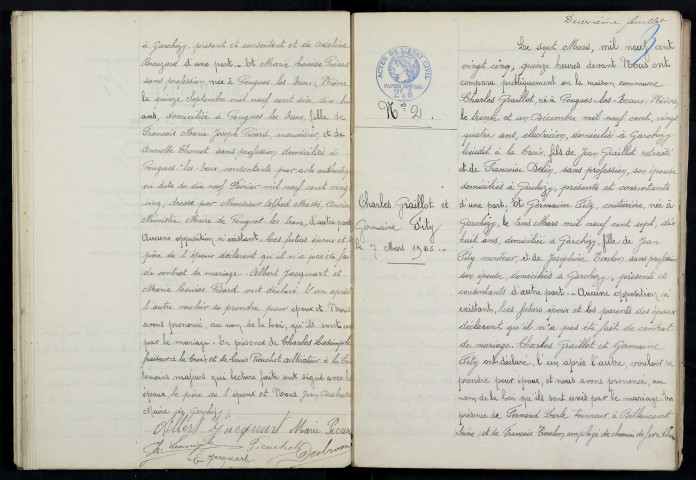 à Garchizy, présent et consentant et de Adeline
Brouzard d'une part. - Et Marie Louise Picard
sans profession, née à Pougues-les-Eaux, Nièvre,
le quinze Septembre mil neuf cent six, dix-huit
ans, domiciliée à Pougues les Eaux, fille de
François Marie Joseph Picard, menuisier, et de
Annette sans profession domiciliés à
Pougues-les-Eaux, consentants par acte authentique
en date du dix neuf Février mil neuf cent vingt
cinq, dressé par Monsieur Alfred Massé, Ancien
Ministre, Maire de Pougues les Eaux, d'autre part.
Aucune opposition n'existant. Les futurs époux et le
père de l'époux déclarent qu'il n'a pas été fait
de contrat de mariage. - Albert Jacquart et
Marie Louise Picard ont déclaré l'un après
l'autre vouloir se prendre pour époux et Nous
avons prononcé, au nom de la Loi, qu'ils sont unis
par le mariage. - En présence de Charles
à la Croix et de Louis Picuchot à la
témoins majeurs qui lecture faite ont signé avec les
époux, le père de l'époux et Nous Jean
Maire de Garchizy.
Albert Jacquart Marie Picard
Picuchot
Jacquart
Deuxième feuillet
3
ACTES DE L'ETAT CIVIL
PAPIER SPECIAL
N° 2.
Charles Graillot et
Germaine Pity
le 7 Mars 1925.
Le sept Mars, mil neuf cent
vingt cinq, quinze heures devant Nous ont
comparu publiquement en la maison commune
Charles Graillot, né à Pougues-les-Eaux, Nièvre,
le trente et un Décembre mil neuf cent, vingt
quatre ans, électricien, domicilié à Garchizy
lieudit à la Croix, fils de Jean Graillot retraité
et de Françoise Belin, sans profession, son épouse
domiciliés à Garchizy, présents et consentants
d'une part; Et Germaine Pity, couturière, née à
Garchizy, le trois Mars mil neuf cent sept, dix
huit ans, domiciliée à Garchizy, fille de Jean
Pity monteur, et de Joséphine Toulon, sans profession
son épouse, domiciliés à Garchizy, présents et
consentants d'autre part. - Aucune opposition n'
existant, les futurs époux et les parents des époux
déclarent qu'il n'a pas été fait de contrat
de mariage. Charles Graillot et Germaine
Pity ont déclaré, l'un après l'autre, vouloir se
prendre pour époux, et nous avons prononcé, au
nom de la loi qu'ils sont unis par le mariage. En
présence de Fernand à Billancourt
(Seine) et de François Toulon employé de chemin de fer à